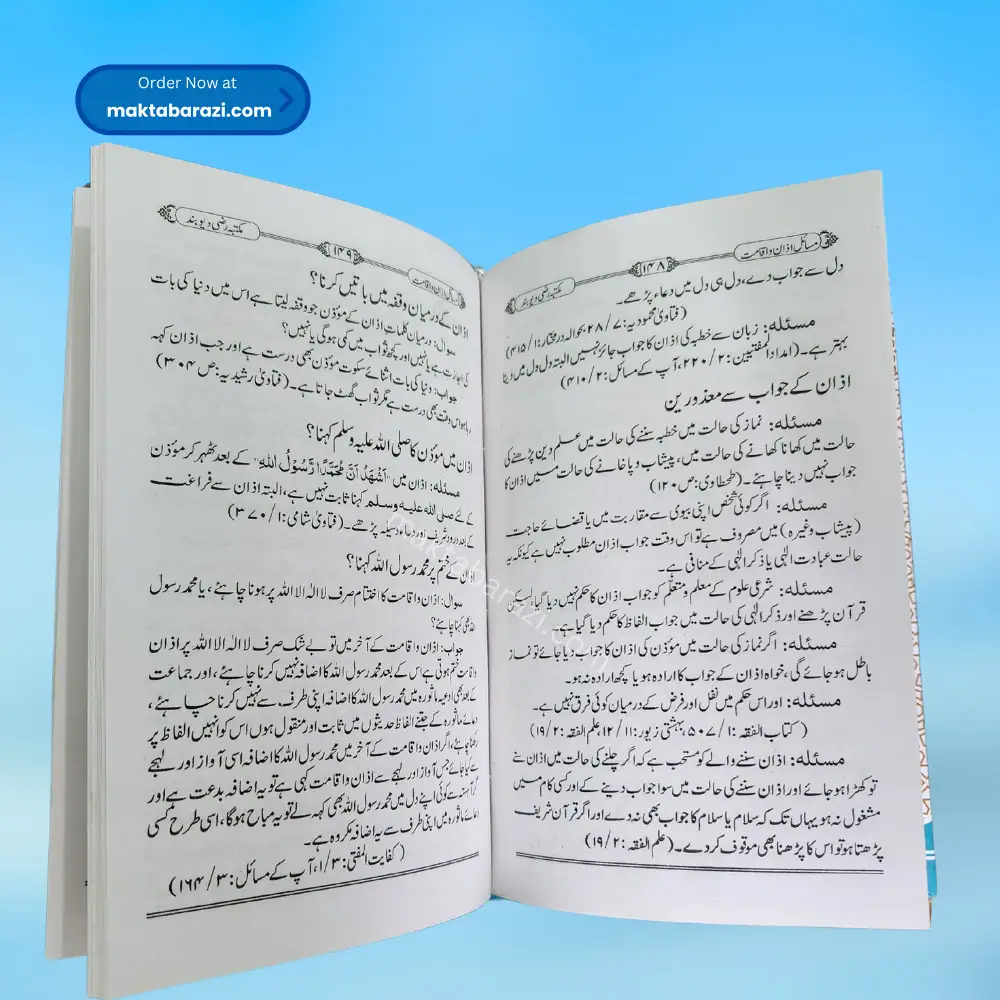 Order Now at
maktabarazi.com
مسائل اذان و اقامت
۱۴۸
مکتبہ رضی دیوبند
دل سے جواب دے، دل ہی دل میں دعاء پڑھے۔
(فتاویٰ محمودیہ: ۷/ ۲۸، بحوالہ درمختار: ۱/ ۴۱۵)
مسئلہ: زبان سے خطبہ کی اذان کا جواب جائز نہیں البتہ دل دل میں دینا
بہتر ہے۔ (امداد المفتیین: ۲/ ۲۲۰، آپ کے مسائل: ۲/ ۴۱۰)
اذان کے جواب سے معذورین
مسئلہ: نماز کی حالت میں خطبہ سننے کی حالت میں علم دین پڑھنے کی
حالت میں کھانا کھانے کی حالت میں، پیشاب و پاخانے کی حالت میں اذان کا
جواب نہیں دینا چاہئے۔ (طحطاوی: ص ۱۲۰)
مسئلہ: اگر کوئی شخص اپنی بیوی سے مقاربت میں یا قضائے حاجت
(پیشاب وغیرہ) میں مصروف ہے تو اس وقت جواب اذان مطلوب نہیں ہے کیونکہ یہ
حالت عبادت الٰہی یا ذکر الٰہی کے منافی ہے۔
مسئلہ: شرعی علوم کے معلم و متعلّم کو جواب اذان کا حکم نہیں دیا گیا، لیکن
قرآن پڑھنے اور ذکر الٰہی کی حالت میں جواب الفاظ کا حکم دیا گیا ہے۔
مسئلہ: اگر نماز کی حالت میں مؤذن کی اذان کا جواب دیا جائے تو نماز
باطل ہو جائے گی، خواہ اذان کے جواب کا ارادہ ہو یا کچھ ارادہ نہ ہو۔
مسئلہ: اور اس حکم میں نفل اور فرض کے درمیان کوئی فرق نہیں ہے۔
(کتاب الفقہ: ۱/ ۵۰۷، بہشتی زیور: ۱۱/ ۱۲، علم الفقہ: ۲/ ۱۹)
مسئلہ: اذان سننے والے کو مستحب ہے کہ اگر چلنے کی حالت میں اذان سنے
تو کھڑا ہو جائے اور اذان سننے کی حالت میں سوا جواب دینے کے اور کسی کام میں
مشغول نہ ہو یہاں تک کہ سلام یا سلام کا جواب بھی نہ دے اور اگر قرآن شریف
پڑھتا ہو تو اس کا پڑھنا بھی موقوف کر دے۔ (علم الفقہ: ۲/ ۱۹)
مسائل اذان و اقامت
۱۴۹
مکتبہ رضی دیوبند
اذان کے درمیان وقفہ میں باتیں کرنا؟
سوال: درمیان کلمات اذان کے مؤذن جو وقفہ لیتا ہے اس میں دنیا کی بات
کی اجازت ہے یا نہیں اور کچھ ثواب میں کمی ہوگی یا نہیں؟
جواب: دنیا کی بات اثنائے سکوت مؤذن بھی درست ہے اور جب اذان کہہ
رہا ہو اس وقت بھی درست ہے مگر ثواب گھٹ جاتا ہے۔ (فتاویٰ رشیدیہ: ص ۳۰۴)
اذان میں مؤذن کا صلی اللہ علیہ وسلم کہنا؟
مسئلہ: اذان میں "اَشْهَدُ اَنَّ مُحَمَّدًا رَّسُوْلُ اللّٰهِ" کے بعد ٹھہر کر مؤذن
کے لئے صلی اللہ علیہ وسلم کہنا ثابت نہیں ہے، البتہ اذان سے فراغت
کے بعد درود شریف اور دعاء وسیلہ پڑھے۔ (فتاویٰ شامی: ۱/ ۳۷۰)
اذان کے ختم پر محمد رسول اللہ کہنا؟
سوال: اذان و اقامت کا اختتام صرف لا الہ الا اللہ پر ہونا چاہئے، یا محمد رسول
اللہ بھی کہنا چاہئے؟
جواب: اذان و اقامت کے آخر میں تو بے شک صرف لا الہ الا اللہ پر اذان
واقامت ختم ہوتی ہے اس کے بعد محمد رسول اللہ کا اضافہ نہیں کرنا چاہئے، اور جماعت
کے بعد بھی ادعیہ ماثورہ میں محمد رسول اللہ کا اضافہ اپنی طرف سے نہیں کرنا چاہئے،
دعائے ماثورہ کے جتنے الفاظ حدیثوں میں ثابت اور منقول ہوں اس کو انہیں الفاظ پر
رکھنا چاہئے، اگر اذان و اقامت کے آخر میں محمد رسول اللہ کا اضافہ اسی آواز اور لہجے
سے کیا جائے جس آواز اور لہجے سے اذان و اقامت کہی ہے تو یہ اضافہ بدعت ہے اور
اگر آہستہ سے کوئی اپنے دل میں محمد رسول اللہ بھی کہہ لے تو یہ مباح ہوگا، اسی طرح کسی
دعائے ماثورہ میں اپنی طرف سے یہ اضافہ مکروہ ہے۔
(کفایت المفتی: ۳/ ۱، آپ کے مسائل: ۳/ ۱۶۴)
maktabarazi.com